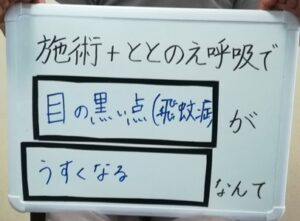 施術+ととのえ呼吸で
目の黒い点(飛蚊症)が
うすくなるなんて